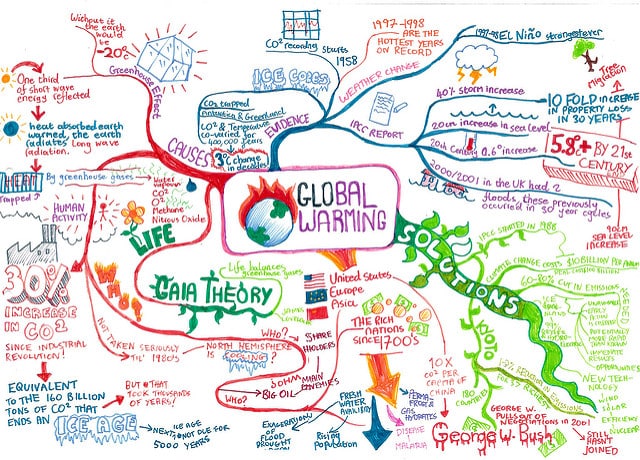 Without it
the earth
would
be
-20°c
Greenhouse Effect
One third
of short wave
energy reflected
heat absorbed earth
warmed, the earth
radiates long wave
radiation.
HEAT
Trapped
By greenhouse gases
Water
vapour
CO²
O²
Methane
Nitrous Oxide
HUMAN
ACTIVITY
CAUSES
LIFE
WHO?
30%
INCREASE
IN CO²
SINCE INDUSTRIAL
REVOLUTION!
EQUIVALENT
TO THE 160 BILLION
TONS OF CO² THAT
ENDS AN
ICE AGE
BUT THAT
TOOK THOUSANDS
OF YEARS!
ICE AGE
NEXT NOT DUE FOR
5000 YEARS
CO² recording
Starts
1958
ICE CORES
CO² trapped
Antarctica & Greenland
CO² & Temperature
varied for
400,000 years
3° change
in decades
EVIDENCE
WEATHER CHANGE
IPCC REPORT
1997-1998
ARE THE
HOTTEST YEARS
ON RECORD
1997-98 EL Niño strongest ever
Tree
Migration
40% storm increase
10 FOLD INCREASE
IN PROPERTY LOSS
IN 30 YEARS
20cm increase in sea level
20th Century 0.6° increase
5.8°+ BY 21st
CENTURY
2000/2001 in the UK had 2
floods, these previously
occurred in 30 year cycles
90cm
SEA LEVEL
INCREASE
GLOBAL
WARMING
GAIA THEORY
Life balances
greenhouse gases
NOT TAKEN SERIOUSLY
TIL' 1980's
NORTH HEMISPHERE
IS COOLING?
WHO?
SHARE
HOLDERS
WHO?
BIG OIL
United States
Europe
Asia
THE RICH
NATIONS
SINCE 1700's
10 X
CO² PER
CAPITA OF
CHINA
EXAGGERATIONS
OF FLOOD
DROUGHT
Rising
Population
FRESH
WATER
PERMA
FROST &
GAS
HYDRATES
DISEASE
MALARIA
SOLUTIONS
IPCC STARTED IN 1988
CLIMATE CHANGE COSTS $10 BILLION PER
60-80% CUT IN EMISSIONS
KYOTO
IMMEDIATE
RESULTS
OPPORTUNITIES
NEW TECH-
NOLOGY
WIND
SOLAR
EFFICIENCY
NUCLEAR
180
COUNTRIES
GEORGE W.
PULLS OUT OF
NEGOTIATIONS IN 2001
George W. Bush
STILL
HASN'T
JOINED